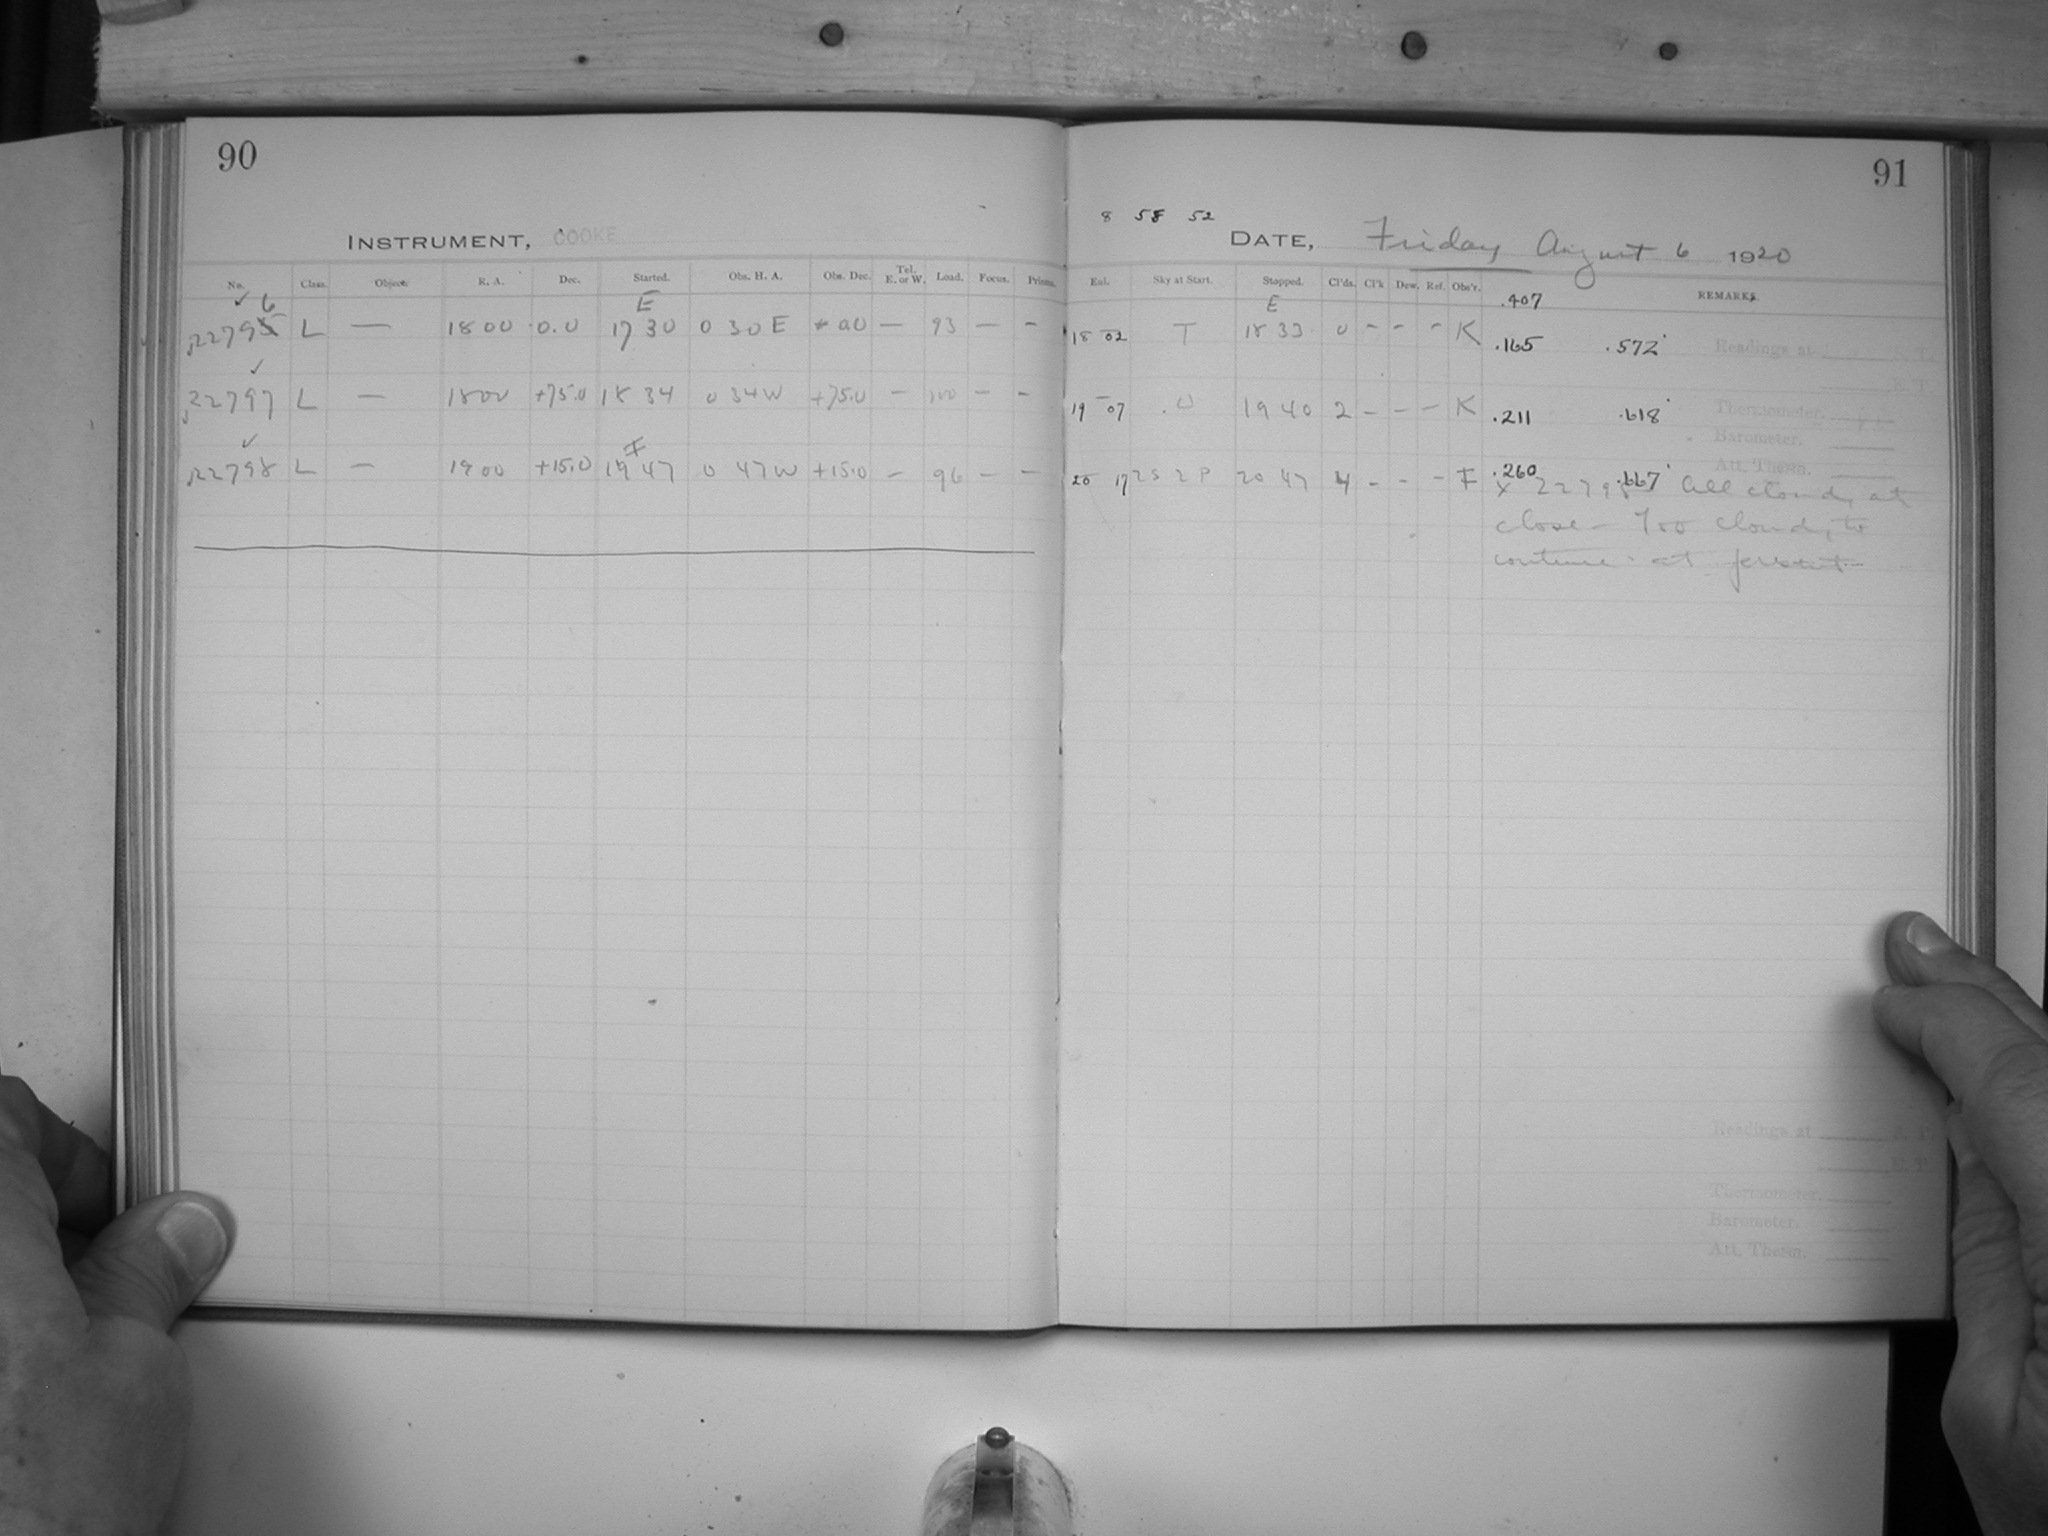 90
91
8 58 52
INSTRUMENT, COOKE
DATE, Friday August 6 1920
No. Class. Object. R. A. Dec. Started. Obs. H. A. Obs. Dec. Tel. E. or W. Load. Focus. Prisms.
Eul. Sky at Start. Stopped. Cl'ds. Cl'k Dew. Ref. Obs'r. REMARKS.
E E .407
22796 L — 18 00 0.0 17 30 0 30 E 0.0 — 93 — - 18 02 T 18 33 0 - - - K .165 .572
Readings at
22797 L — 18 00 +75.0 18 34 0 34 W +75.0 - 100 - - 19 07 U 19 40 2 - - - K .211 .618
Thermometer.
Barometer.
Att. Therm.
F
22798 L — 19 00 +15.0 19 47 0 47 W +15.0 - 96 - - 20 17 2S 2P 20 47 4 - - - F .260 .667
x 22798 All cloudy at
close - Too cloudy to
continue at present
Readings at
Thermometer.
Barometer.
Att. Therm.